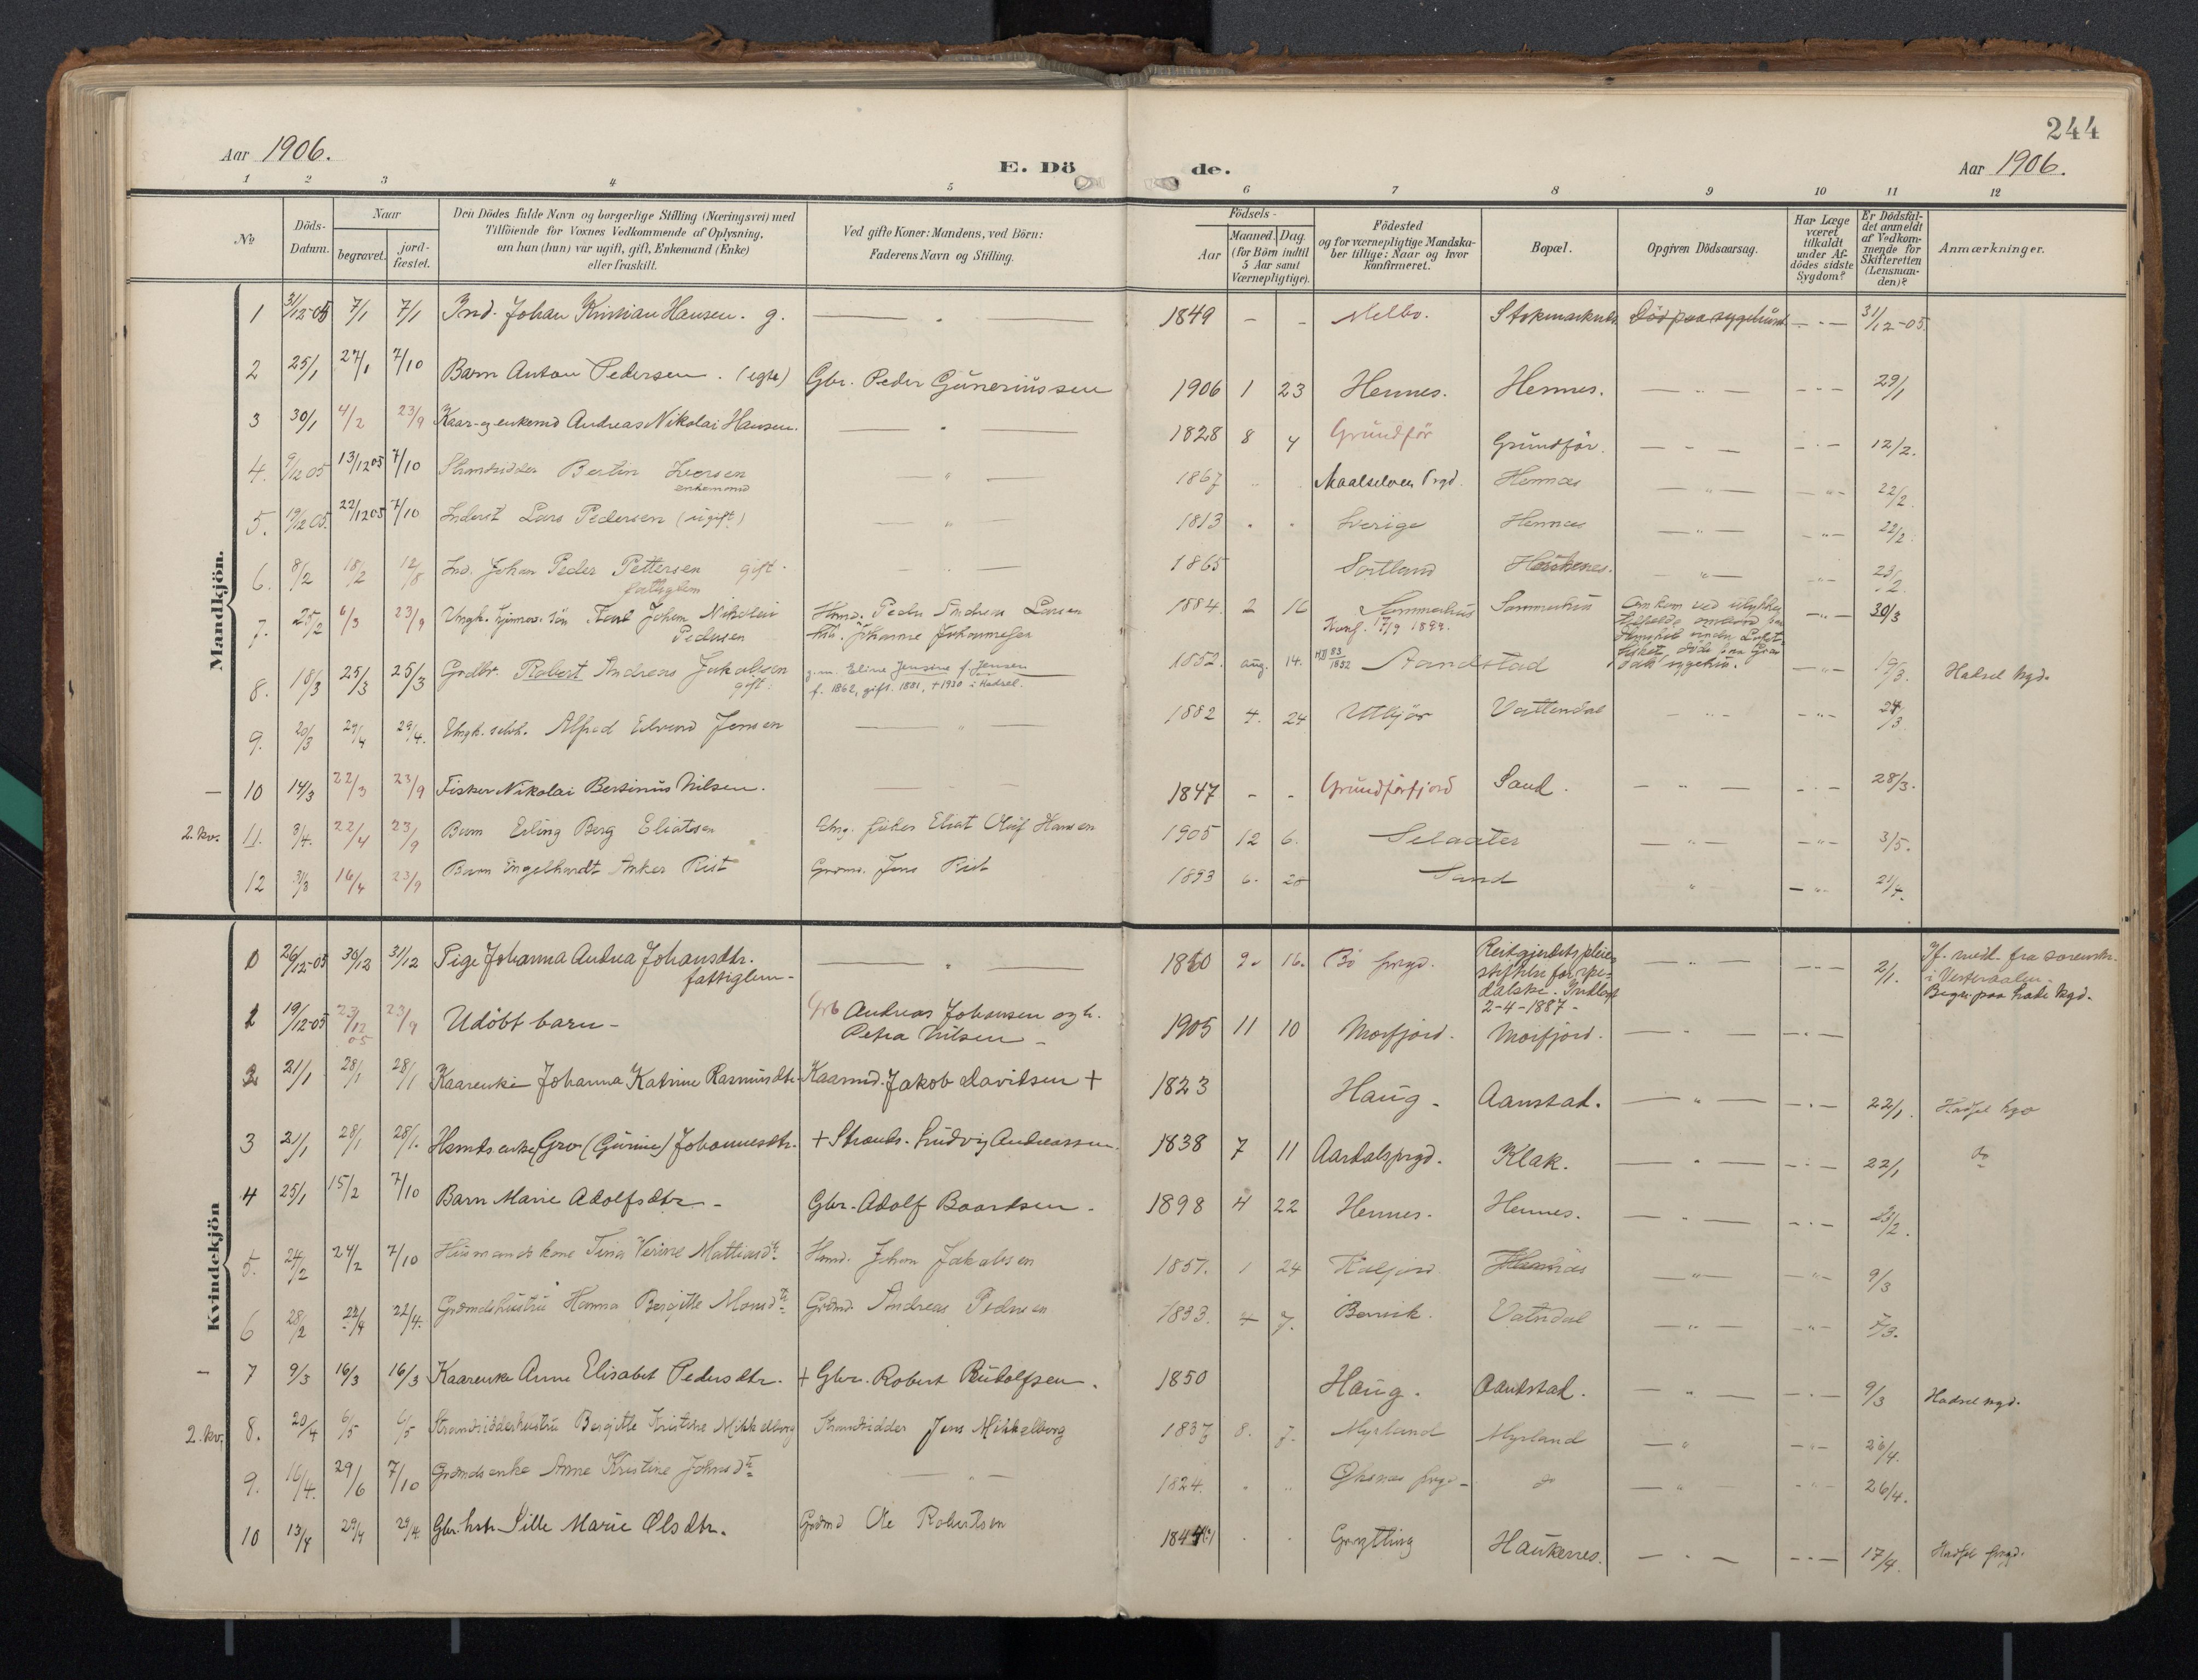 244
Aar 1906.
E. Dö de.
Aar 1906.
1 2 3 4 5 6 7 8 9 10 11 12
№
Döds-
Datum.
Naar
begravet.
jord-
fæstet.
Den Dödes fulde Navn og borgerlige Stilling (Næringsvei) med
Tilföiende for Voxnes Vedkommende af Oplysning,
om han (hun) var ugift, gift, Enkemand (Enke)
eller fraskilt.
Ved gifte Koner: Mandens, ved Börn:
Faderens Navn og Stilling.
Födsels-
Aar
Maaned. Dag.
(for Börn indtil
5 Aar samt
Værnepligtige).
Födested
og for værnepligtige Mandska-
ber tillige: Naar og hvor
konfirmeret.
Bopæl.
Opgiven Dödsaarsag.
Har Læge
været
tilkaldt
under Af-
dödes sidste
Sygdom?
Er Dödsfal-
det anmeldt
af Vedkom-
mende for
Skifteretten
(Lensman-
den)?
Anmærkninger.
Mandkjön.
1 31/12-05 7/1 7/1 Ind. Johan Kristian Hansen. g. — " — 1849 - - Melbo. Stokmarknes Död paa sygehuset — " — 31/12-05.
2 25/1 27/1 7/10 Barn Anton Pedersen. (egte) Gbr. Peder Gunerius sen 1906 1 23 Hennes. Hennes. — " — — " — 29/1
3 30/1 4/2 23/9 Kaar- og enkemd Andreas Nikolai Hansen. — " — 1828 8 4 Grundför Grundför. — " — — " — 12/2.
4. 9/12 05 13/12 05 7/10 Strandsidder Bertin Iversen
enkemand
— " — 1867 " " Maalselven Prgd. Hennes — " — — " — 22/2.
5. 19/12 05. 22/12 05 7/10 Inderst Lars Pedersen (ugift) — " — 1813 " " Sverige Hennes — " — — " — 22/2.
6. 8/2 18/2 12/8 Ind. Johan Peder Pettersen gift.
fattiglem
— " — 1865 Sortland Haukenes. — " — — " — 23/2.
7. 25/2 6/3 23/9 Ungk. hjemmev. sön Karl Johan Nikolai
Pedersen
Hmd. Peder Andreas Larsen
hst. Johanne Johannesen
1884. 2 16 Sommerhus
Konf. 17/9 1899.
Sommerhus Omkom ved ulykkes
tilfælde ombord paa
Dampskib under Lofot
fisket, döde paa Grav
dals sygehus.
— " — 30/3
8. 18/3 25/3 25/3 Grdbr. Robert Andreas Jakobsen
gift.
g.m. Eline Jensine f. Jensen
f. 1862, gift. 1881, +1930 i Hadsel.
1852. aug. 14. Aandstad — " — 19/3. Hadsel kgd.
9. 20/3 29/4 29/4. Ungk. selvh. Alfred Edvard Jensen — " — 1882 4. 24 Utkjör Vattendal — " — — " — 24/3.
— 10 14/3 22/3 23/9 Fisker Nikolai Bersinus Nilsen. — " — 1847 - - Grundförfjord Sand. — " — — " — 28/3.
2. kv. 11. 3/4. 22/4 23/9 Barn Erling Berg Eliatsen Ung. fisker Eliat Oluf Hansen 1905 12 6. Selaater — " — — " — 3/5.
12 31/3 16/4 23/9 Barn Engelhardt Anker Rist Grdmd. Jens Rist 1893 6. 28 Sand " — " — 21/4.
Kvindekjön
1 26/12-05 30/12 31/12 Pige Johanna Andrea Johansdtr.
fattiglem-
— " — 1860 9. 16. Bö prgd. Reitgjerdets pleie-
stiftelse for spe-
dalske. Indlagt
2-4-1887-
— " — — " — 2/1. If. medd. fra sorenskr.
i Vesteraalen.
Begr. paa Lade kgd.
1 19/12-05 23/12 05 23/9 Udöbt barn- Grb Andreas Johansen og h.
Petra Nilsen -
1905 11 10 Morfjord. Morfjord. — " — — " —
2 21/1 28/1 28/1 Kaarenke Johanna Katrine Rasmusdtr. Kaarmd. Jakob Davidsen + 1823 Haug. Aanstad. — " — — " — 22/1. Hadsel kgd
3 21/1 28/1 28/1. Hmds enke Gro (Gurine) Johannesdtr. + Strands. Ludvig Andreassen. 1838 7 11 Aardalsprgd. Klak. — " — — " — 22/1 do
4 25/1 15/2 7/10 Barn Marie Adolfsdtr - Gbr. Adolf Baardsen. 1898 4 22 Hennes. Hennes. — " — — " — 23/2.
5. 24/2 24/2 7/10 Husmands kone Tina Verine Mattiasdtr. Hmd. Johan Jakobsen 1857. 1 24 Kalfjord Hennes — " — — " — 9/3
6 28/2 22/4 22/4. Grdmdshustru Hanna Bergitte Monsdtr. Grdmd. Andreas Pedersen 1833. 4 7. Borvik. Vatndal — " — — " — 5/3.
— 7 9/3 16/3 16/3 Kaarenke Anne Elisabet Pedersdtr. + Gbr. Robert Rudolfsen. 1850 Haug. Aandstad. — " — — " — 9/3 Hadsel kgd.
2. kv. 8. 20/4 6/5 6/5 Strandsidderhustru Bergitte Kristine Mikkelborg Strandsidder Jens Mikkelborg 1837 8. 7. Myrland Myrland — " — " — 26/4.
9. 16/4. 29/6 7/10 Grdmdsenke Anne Kristine Johnsdtr — " — 1824. " " Öksnes prgd. do — " — — " — 26/4.
10 13/4 29/4 29/4 Gbr. hstr. Sille Marie Olsdtr. Grdmd Ole Robertsen 1844 (?) " " Grytting Haukenes. — " — — " — 17/4. Hadsel prgd.